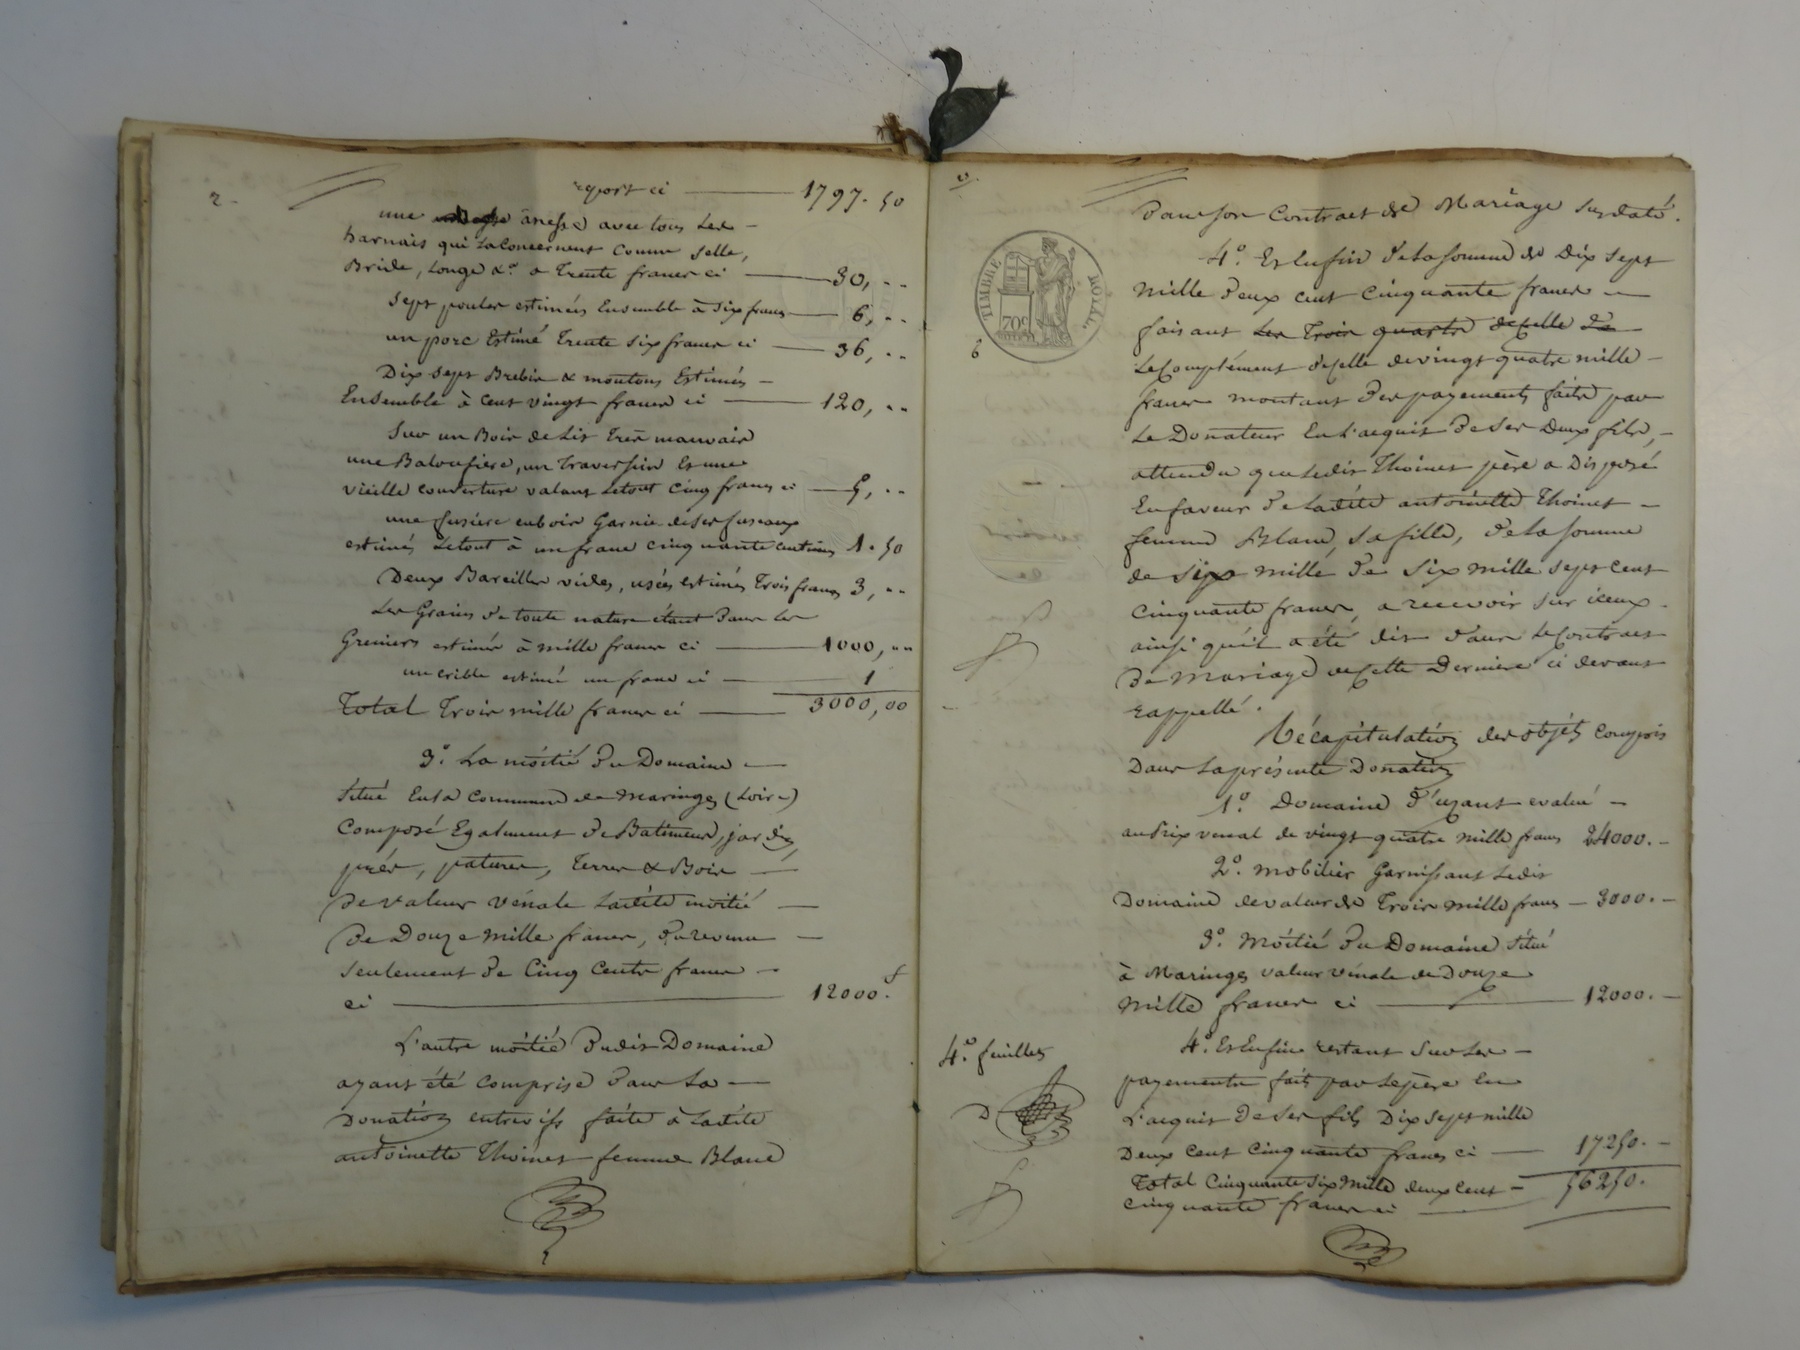 2.
report ci 1797. 50
une ânesse avec tous les
harnais qui la concernent comme selle,
Bride, longe &a. a Trente francs ci 30, ..
Sept poules estimées Ensemble à six francs 6, ..
un porc Estimé Trente six francs ci 36, ..
Dix sept Brebis & moutons Estimés
Ensemble à cent vingt francs ci 120, ..
Sur un Bois de Lit Très mauvais
une Baloufière, un Traversin Et une
vieille couverture valant le tout cinq francs ci 5, ..
une fusière en bois Garnie de ses fuseaux
estimés Le tout à un franc cinquante centimes 1. 50
Deux Bareilles vides, usées estimés Trois francs 3, ..
Les Grains de toute nature étant dans les
Greniers estimés à mille francs ci 1000, ..
un crible estimé un franc ci 1
Total Trois mille francs ci 3000,00
3.° La moitié du Domaine
Situé En la Commune de Maringes (Loire)
Composé Egalement de Batiments, jardin,
prés, patures, Terres & Bois
De valeur vénale Ladite moitié
De Douze mille francs, du revenu
seulement de Cinq Cents francs
ci 12000.f
L'autre moitié dudit Domaine
ayant été comprise dans La
Donation entrevifs faite à Ladite
antoinette Thoinet femme Blanc
TIMBRE ROYAL
70c
6
4.e feuillet
Dans son Contrat de Mariage susdaté.
4.° Et Enfin de la somme de Dix sept
mille deux cent cinquante francs
faisant Les Trois quarts de celle de
Le Complément de celle de vingt quatre mille
francs montant des payements faits par
Le Donateur En l'acquit de ses Deux fils,
attendu que ledit Thoinet père a Disposé
En faveur de Ladite antoinette Thoinet
femme Blanc, sa fille, de la somme
de six mille de six mille sept cent
cinquante francs, a recevoir sur iceux
ainsi qu'il a été dit dans Le Contrat
de mariage de cette Derniere ci devant
rappellé.
Récapitulation des objets compris
Dans La présente Donation
1.° Domaine d'uzant evalué
au Prix venal de vingt quatre mille francs 24000.
2.° mobilier Garnissant Ledit
Domaine de valeur de Trois mille francs 3000.
3.° Moitié du Domaine situé
à Maringes valeur vénale de Douze
mille francs ci 12000.
4.° Et Enfin restant sur Les
payements faits par Le père En
L'acquit de ses fils Dix sept mille
Deux Cent Cinquante francs ci 17250.
Total Cinquante six mille deux cent 56250.
cinquante francs ci